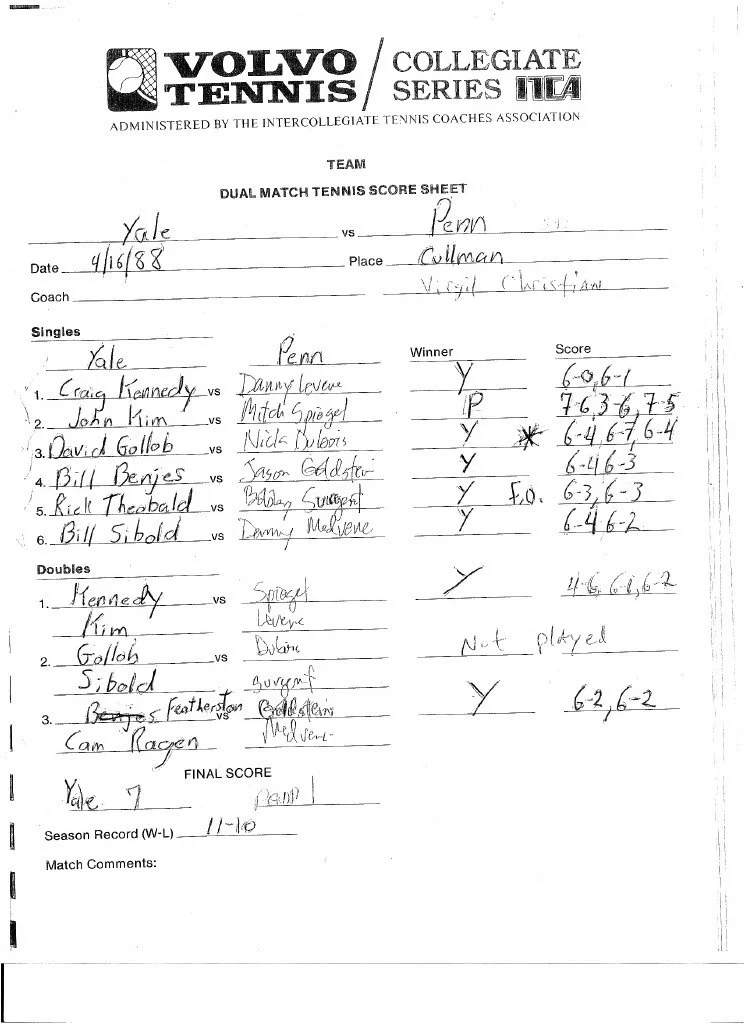 VOLVO TENNIS / COLLEGIATE SERIES ITCA
ADMINISTERED BY THE INTERCOLLEGIATE TENNIS COACHES ASSOCIATION
TEAM
DUAL MATCH TENNIS SCORE SHEET
Yale vs Penn
Date 4/16/88 Place Cullman
Coach Virgil Christian
Singles
Yale Penn Winner Score
1. Craig Kennedy vs Danny Levene Y 6-0, 6-1
2. John Kim vs Mitch Spiegel P 7-6, 3-6, 7-5
3. David Gollob vs Nick Dubois Y * 6-4, 6-7, 6-4
4. Bill Benjes vs Jason Goldstein Y 6-4 6-3
5. Rick Theobald vs Surgent Y F.O. 6-3, 6-3
6. Bill Sibold vs Danny Medvene Y 6-4 6-2
Doubles
1. Kennedy vs Spiegel Y 4-6, 6-1, 6-2
Kim Levene
2. Gollob vs Dubois Not played
Sibold Surgent
3. Benjes Featherston vs Goldstein Y 6-2, 6-2
Cam Ragen Medvene
FINAL SCORE
Yale 7 Penn 1
Season Record (W-L) 11-10
Match Comments: